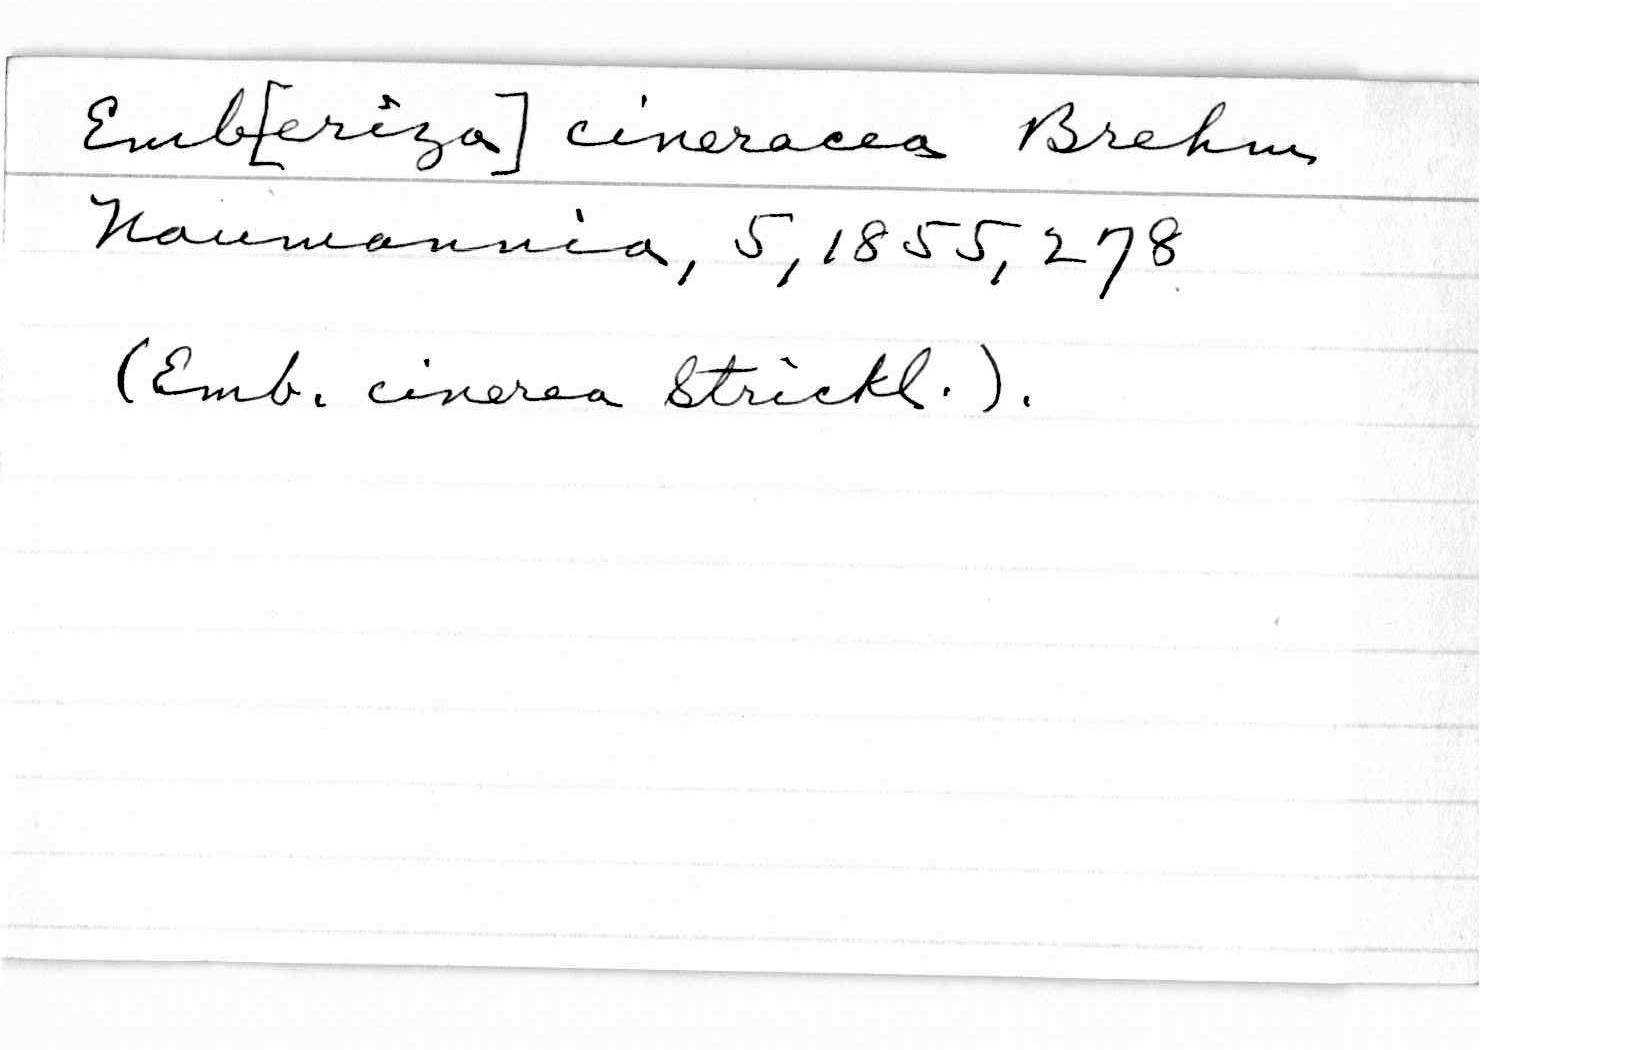 Emb[eriza] cineracea Brehm
Naumannia, 5, 1855, 278
(Emb. cinerea Strickl.).